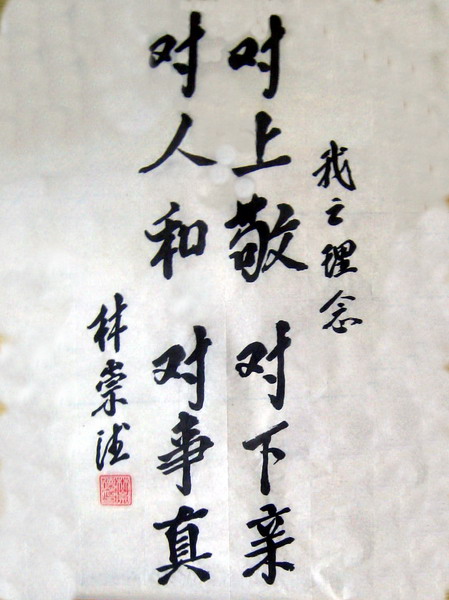 我之理念
对上敬 对下亲
对人和 对事真
林崇德